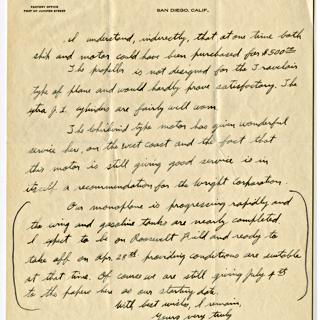 FACTORY OFFICE
FOOT OF JUNIPER STREET
SAN DIEGO, CALIF.
I understand, indirectly, that at one time both
ship and motor could have been purchased for $500.00
The propeller is not designed for the Travelair
type of plane and would hardly prove satisfactory. The
extra J.1. cylinders are fairly well worn.
The Whirlwind type motor has given wonderful
service here, on the west coast and the fact that
this motor is still giving good service is in
itself a recommendation for the Wright Corporation.
Our monoplane is progressing rapidly and
the wing and gasoline tanks are nearly completed
I expect to be on Roosevelt Field and ready to
take off on Apr. 28th providing conditions are suitable
at that time. Of course we are still giving July 4th
to the papers here as our starting date.
With best wishes, I remain,
Yours very truly